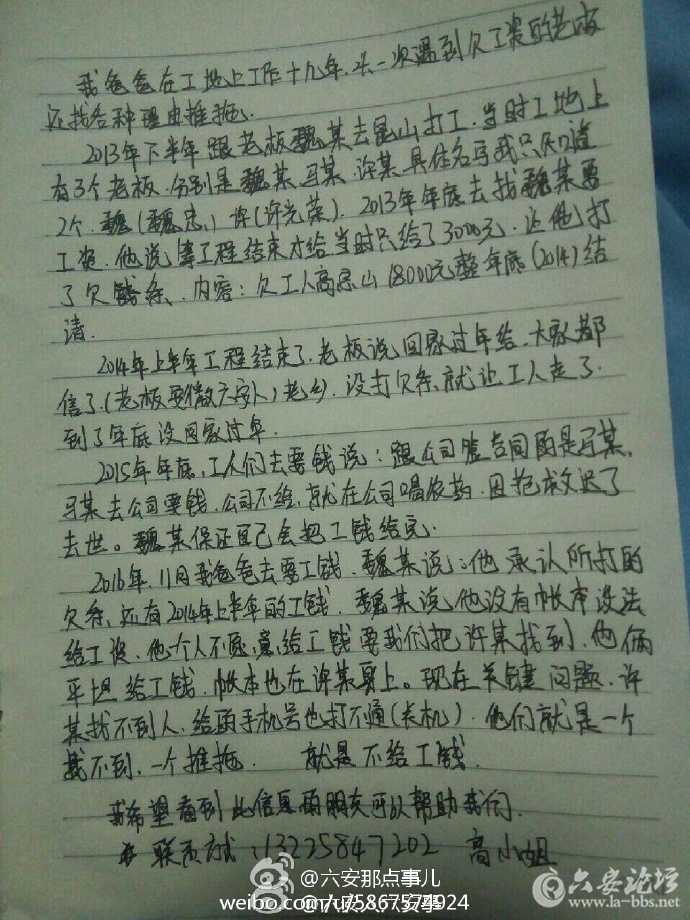 我爸爸在工地上工作十九年.头一次遇到欠工资的老板
还找各种理由推拖.
2013年下半年跟老板魏某去昆山打工.当时工地上
有3个老板.分别是魏某.马某.许某.具体名字我只知道
2个.魏(魏忠)许(许光荣).2013年年底去找魏某要
工资.他说等工程结束才给当时只给了3000元.还他打
了欠钱条.内容:欠工人高 山18000元整年底(2014)结
清.
2014年上半年工程结束了.老板说回家过年给.大家都
信了.(老板 六安人)老乡.没打欠条.就让工人走了.
到了年底没回家过年.
2015年年底.工人们去要钱说:跟公司签合同的是马某.
马某去公司要钱.公司不给.就在公司喝农药.因抢救迟了
去世。魏某保证自己会把工钱给完.
2016年.11月我爸爸去要工钱.魏某说:他承认所打的
欠条.还有2014年上半年的工钱.魏某说他没有帐本没法
给工资.他个人不愿意给工钱要我们把许某找到.他俩
平坦给工钱.帐本也在许某身上。现在关键问题.许
某找不到人.给的手机号也打不通(关机).他们就是一个
找不到.一个推拖. 就是不给工钱.
我希望看到此信息的朋友可以帮助我们.
联系方式:13225847202 高小姐
@六安那点事儿
weibo.com/u/5867574924
六安论坛
www.la-bbs.net